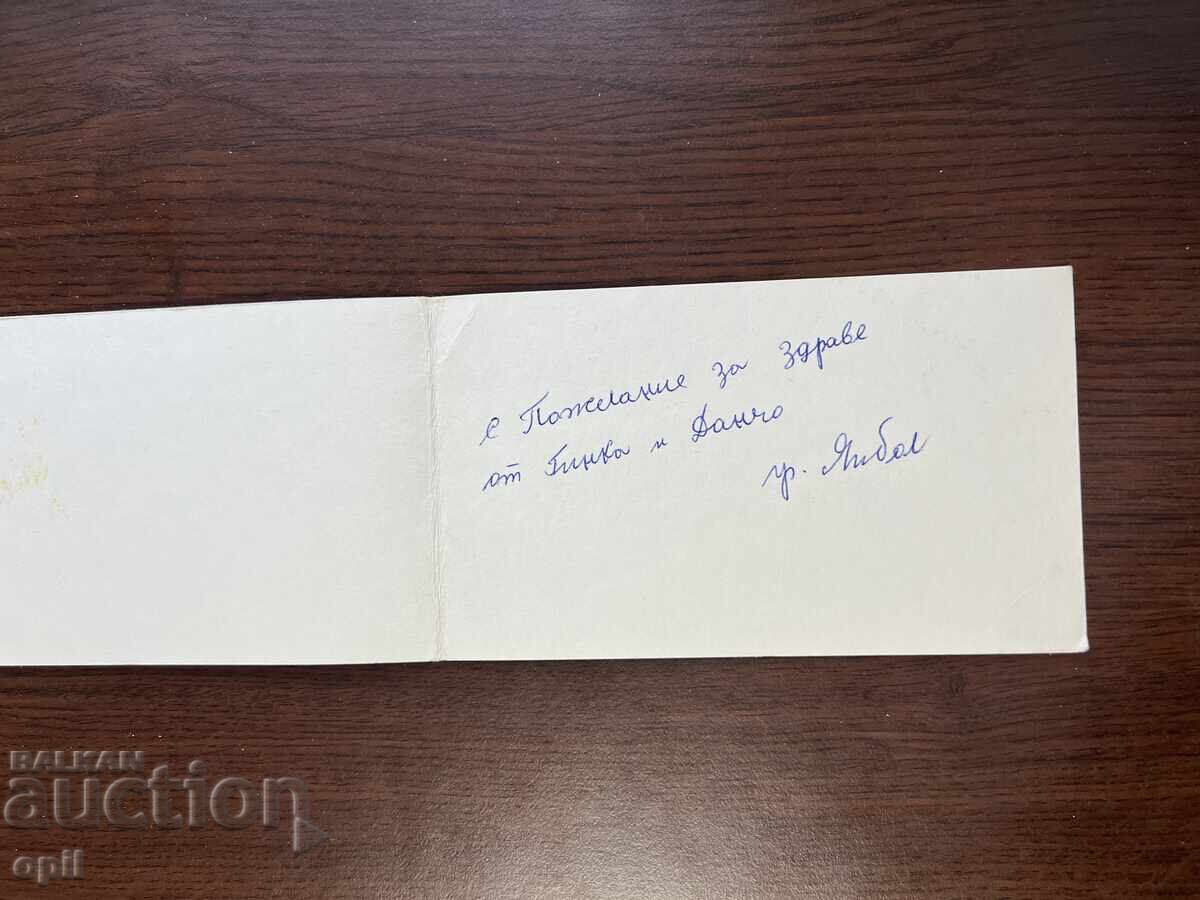 с Пожелание за здраве
от Гинка и Данчо
гр. Ямбол
BALKAN
auction
opil